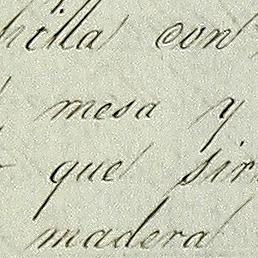 hilla con
mesa y
que sir
madera